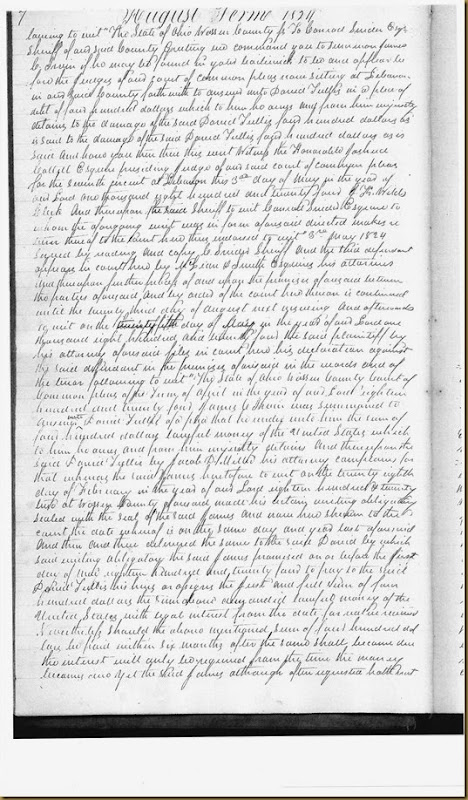 7 August Term 1824
to wit "The State of Ohio Warren County Ss To Conrad Snider Esqr
Sheriff of said County Greeting we command you to summon James
if he may be found in your bailiwick to be and appear be
fore the Judges of our court of common pleas now sitting at Lebanon
in and said County forthwith to answer unto Daniel Tullis in a plea of
debt of four hundred dollars which to him he owes and from him unjustly
detains to the damage of the said Daniel Tullis four hundred dollars as
is said to the damage of the said Daniel Tullis four hundred dollars as is
said And have you then there this writ Witness the Honorable Joshua
Collett Esquire presiding Judge of our said court of common pleas
for the seventh circuit at Lebanon this 3rd day of May in the year of
our Lord one thousand eight hundred and twenty four
Clerk And thereupon the said Sheriff to wit Conrad Snider Esquire to
whom the foregoing writ was in form aforesaid directed makes re
turn thereof to the court here thus endorsed to wit 3rd May 1824
Served by reading And copy C Snider Sheriff And the said defendant
appears in court here by McLean & Smith Esquires his attornies
and thereupon further of and upon the premises aforesaid between
the parties aforesaid and by order of the court here thereon is continued
until the twenty third day of August next ensuing And afterwards
to wit on the twenty fifth day of May in the year of our Lord one
thousand eight hundred and twenty four the said plaintiff by
his attorney aforesaid files in court here his declaration against
the said defendant in the premises aforesaid in the words and of
the tenor following to wit "The State of Ohio Warren County Court of
Common pleas of the Term of April in the year of our Lord eighteen
hundred and twenty four James was summoned to
answer unto Daniel Tullis of a plea that he render unto him the sum of
four hundred dollars lawful money of the United States which
to him he owes and from him unjustly detains And thereupon the
said Daniel Tullis by Jacob D Miller his attorney complains for
that whereas the said James heretofore to wit on the twenty eighth
day of February in the year of our Lord eighteen hundred & twenty
at Warren County aforesaid made his certain writing obligatory
sealed with the seal of the said James and now here shewn to the
court the date whereof is on the same day and year last aforesaid
And then and there delivered the same to the said Daniel by which
said writing obligatory the said James promised on or before the first
day of May eighteen hundred and twenty four to pay to the said
Daniel Tullis his heirs or assigns the just and full sum of four
hundred dollars the sum above demanded lawful money of the
United States with legal interest from the date for value received
Nevertheless should the above mentioned sum of four hundred dol
lars be paid within six months after the same shall become due
the interest will only be required from the time the money
becomes due Yet the said James although often requested hath not